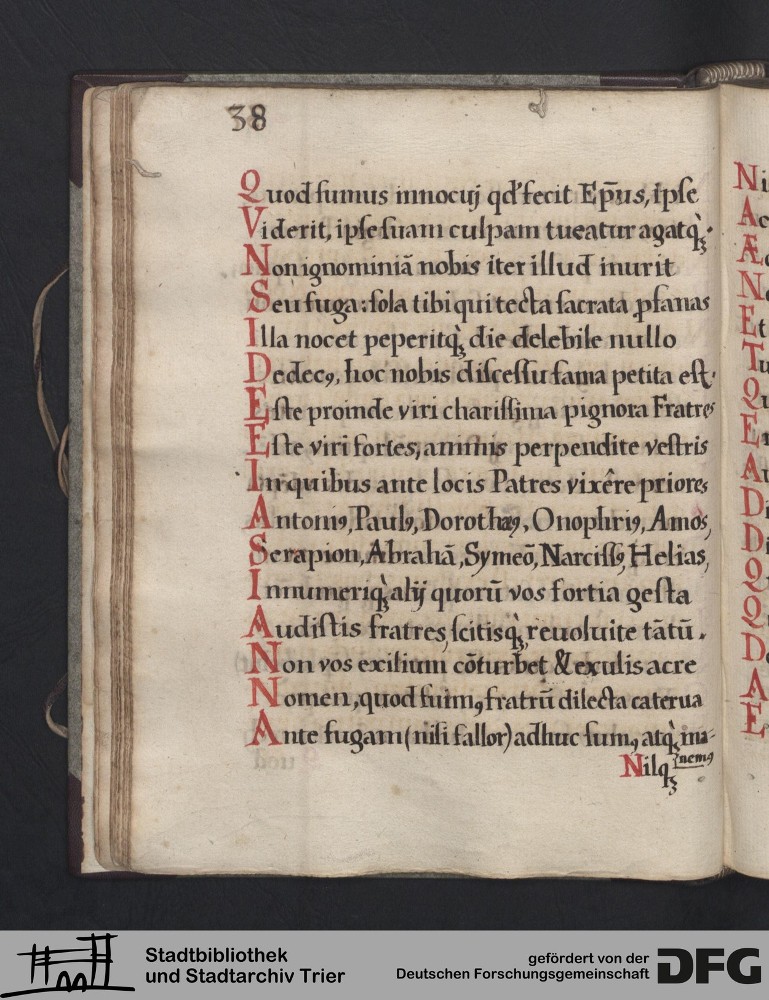 38
Quod sumus innocuj qď fecit Ep̄us, ipse
Viderit, ipse suam culpam tueatur agatq̀ꝫ.
Non ignominiā nobis iter illud inurit
Seu fuga: sola tibi qui tecta sacrata ꝓfanas
Illa nocet peperitq̀ꝫ die delebile nullo
Dedecꝰ, hoc nobis discessu fama petita est.
Este proinde viri charissima pignora Fratres
Este viri fortes, animis perpendite vestris
In quibus ante locis Patres vixêre priores
Antoniꝰ, Paulꝰ, Dorothæꝰ, Onophriꝰ, Amos,
Serapion, Abrahā, Symeō, Narcissꝰ, Helias,
Innumeriq̀ꝫ alij quorū vos fortia gesta
Audistis fratres, scitisq̀ꝫ, reuoluite tātū.
Non vos exilium cōturbet & exulis acre
Nomen, quod fuimꝰ, fratrū dilecta caterua
Ante fugam (nisi fallor) adhuc sumꝰ, atq̀ꝫ ma-
nemꝰ
Nilqꝫ
Ni
A
Æ
N
Et
Tu
Qu
E
A
D
D
Q
Q
D
A
E
Stadtbibliothek
und Stadtarchiv Trier
gefördert von der
Deutschen Forschungsgemeinschaft
DFG